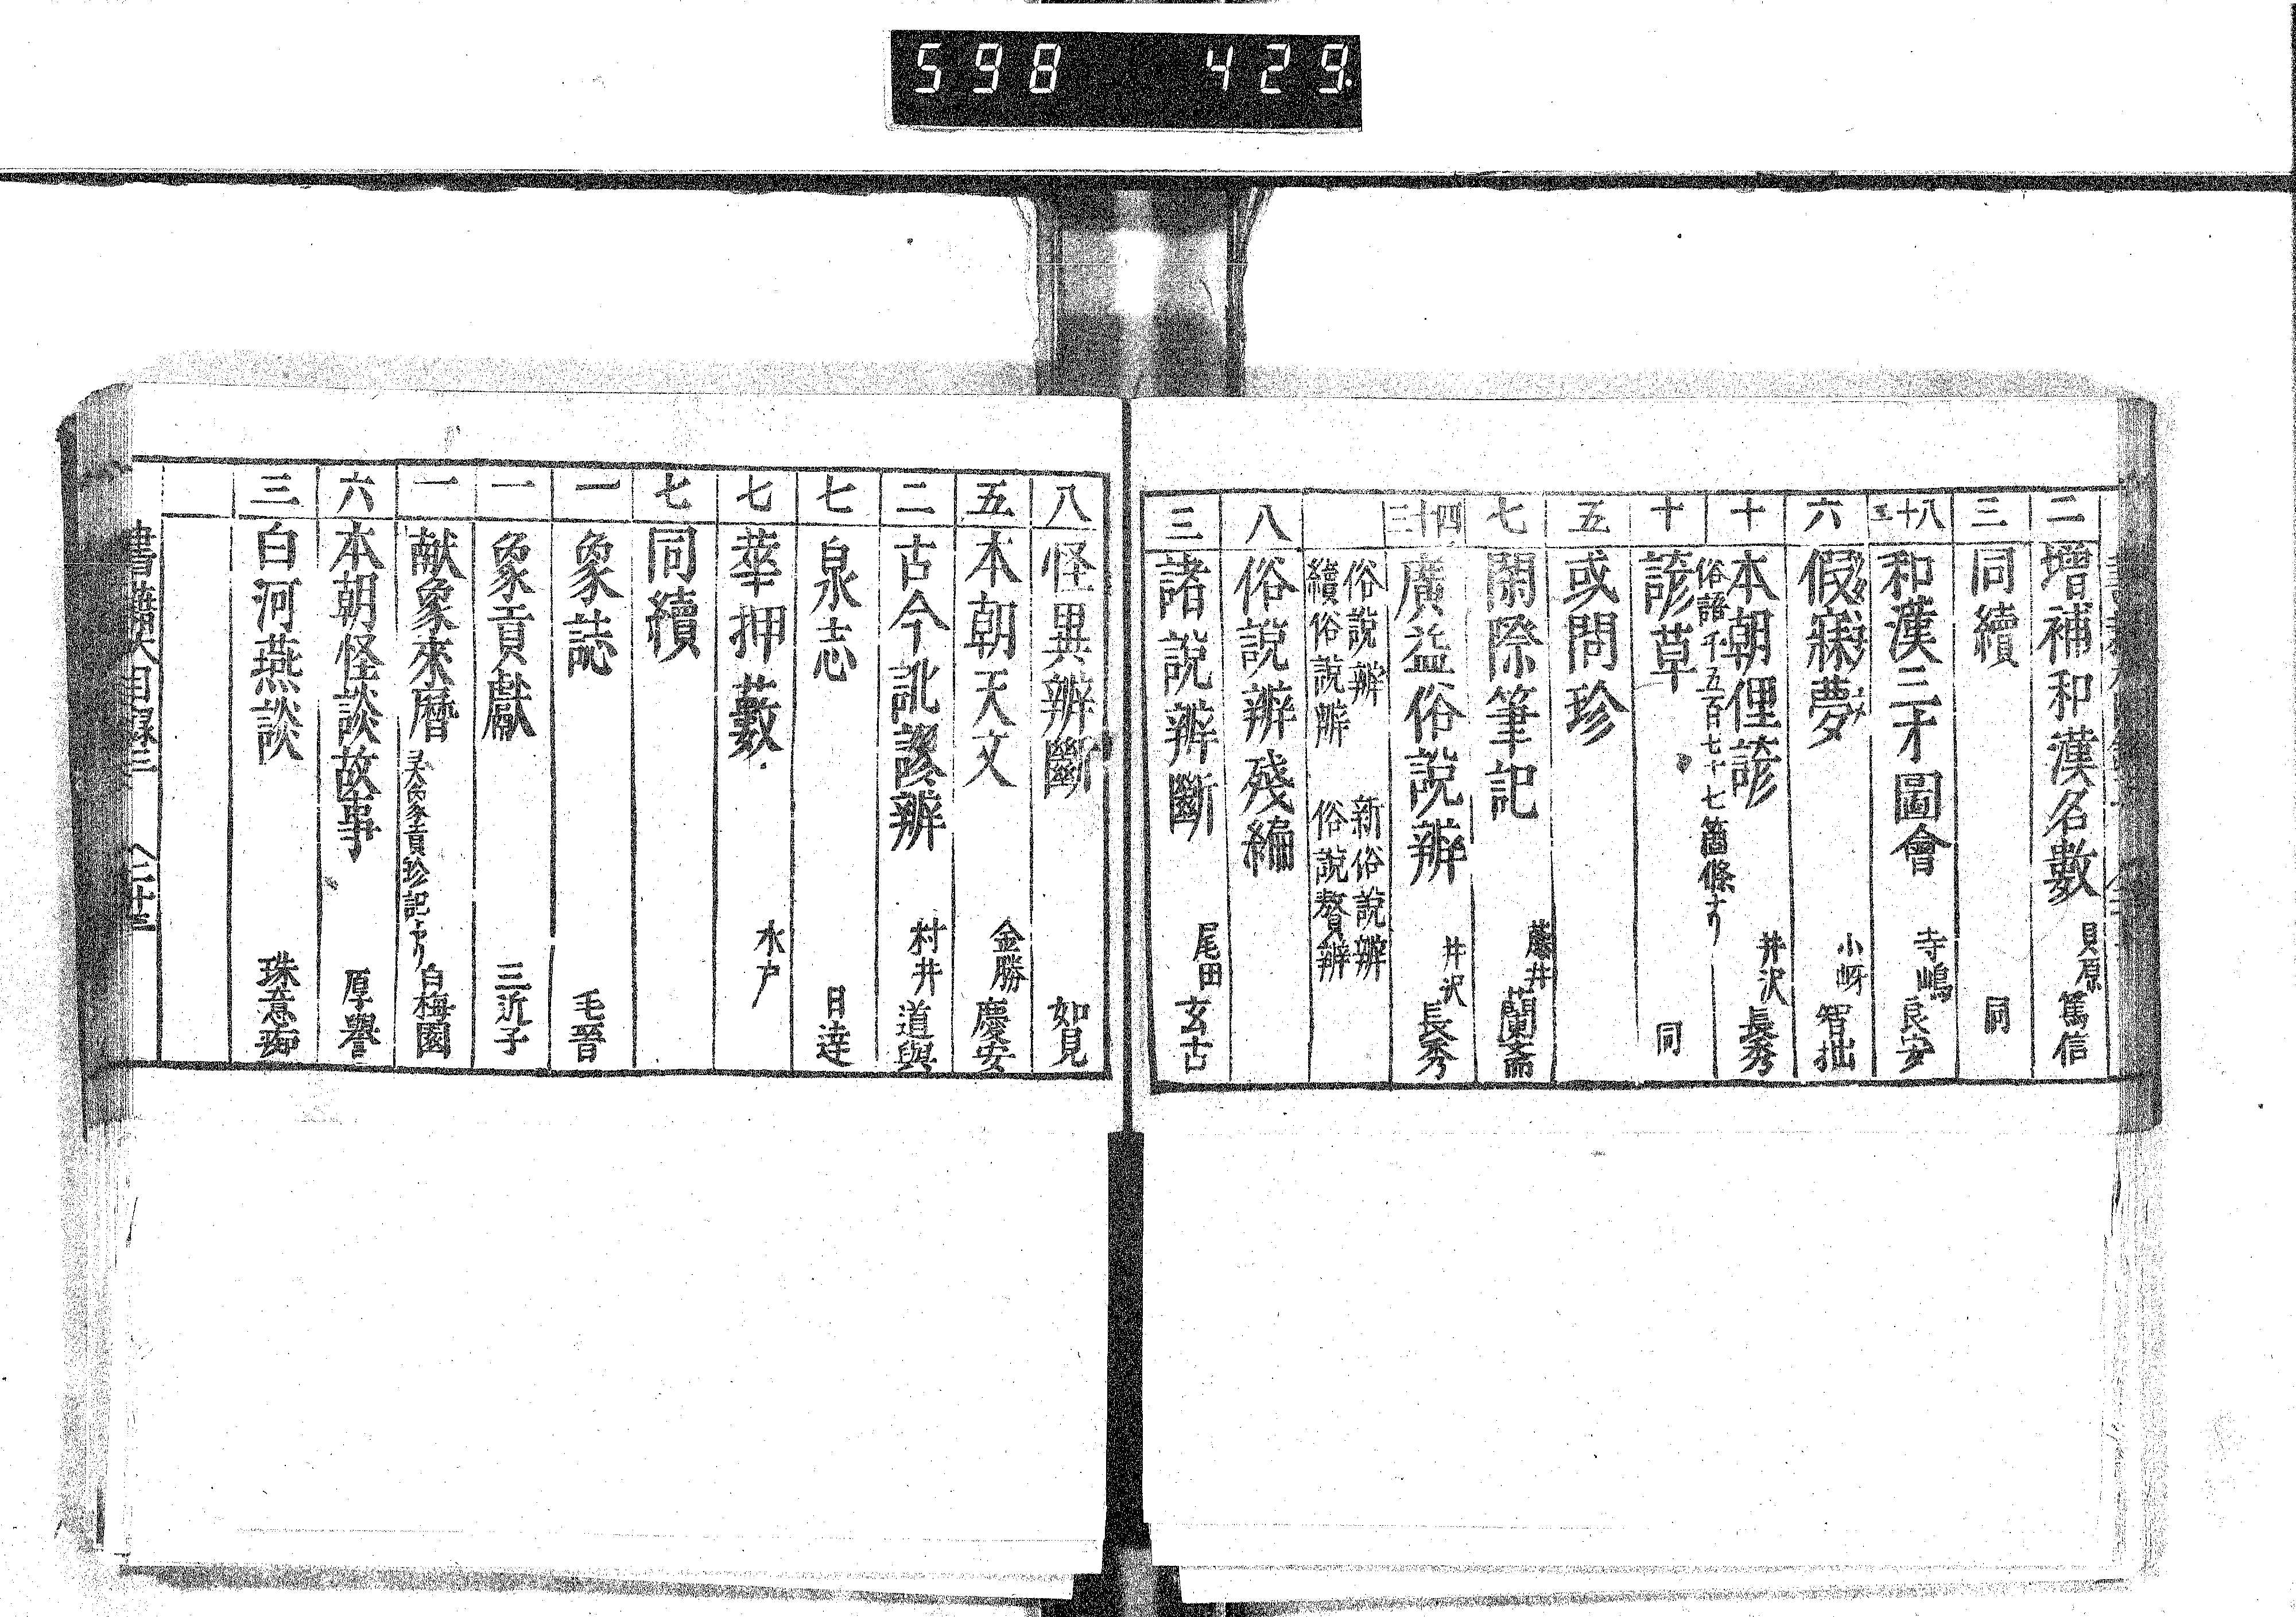 598 429.
二 増補和漢名數 貝原篤信
三 同續 同
八十三 和漢三才圖會 寺嶋良安
六 假寐夢 小㟒智拙
十 本朝俚諺 井沢長秀
俗語千五百七十七箇條すり
十 諺草 同
五 或問珍
七 閑際筆記 藤井蘭斎
四十三 廣益俗說辨 井沢長秀
俗說辨 新俗說辨
續俗說辨 俗說贅辨
八 俗說辨殘編
三 諸說辨斷 尾田玄古
八 怪異辨斷 如見
五 本朝天文 金勝慶安
二 古今訛謬辨 村井道與
七 泉志 日達
七 華押藪 水戸
七 同續
一 象誌 毛晉
一 象貢獻 三近子
一 献象來曆 白梅園
六 本朝怪談故事 厚譽
三 白河燕談 珠意痴
書籍大目録三 二十三